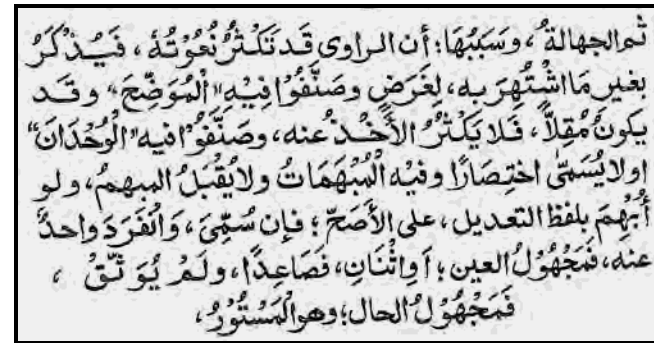 ثم الجهالةُ، وَسَبَبُهَا: أن الراوی قَد تَكْثُرُ نُعُوْتُهُ، فَيُذْكَرُ
بغير مَا اشْتُهِرَ به، لِغَرَضٍ وصَنَّفُوْا فِيْهِ "الْمُوَضِّحَ" وقد
يكونُ مُقِلاًّ، فَلا يَكْثُرُ الأَخْذُ عنه، وصَنَّفُوْا فيه "الْوُحْدَانَ"
اولا يُسَمّٰى اختِصَارًا وفيْه الْمُبْهَمَاتُ ولا يُقْبَلُ المبهمُ، ولو
أُبْهِمَ بلفظ التعديل، على الأَصَحِّ؛ فإن سُمِّیَ، وَانْفَرَدَ واحدٌ
عنه، فَمَجْهُوْلُ العين؛ أَوِ اثْنَانِ، فَصَاعِدًا، ولَمْ يُوَثَّقْ،
فَمَجْهُوْلُ الحال؛ وهو الْمَسْتُوْرُ،